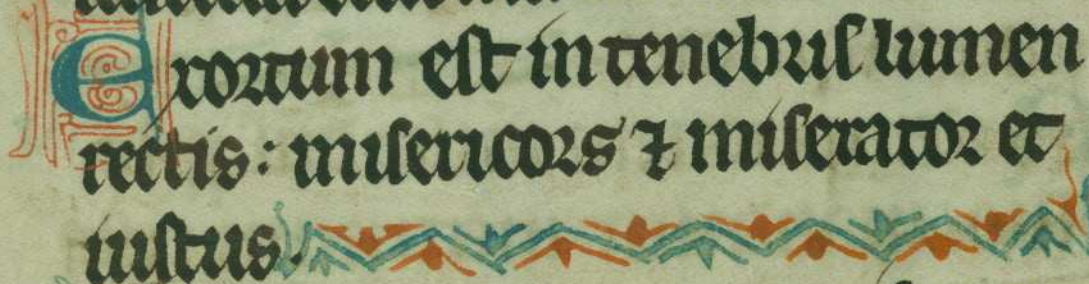 Exortum est in tenebris lumen
rectis: misericors ⁊ miserator et
iustus.